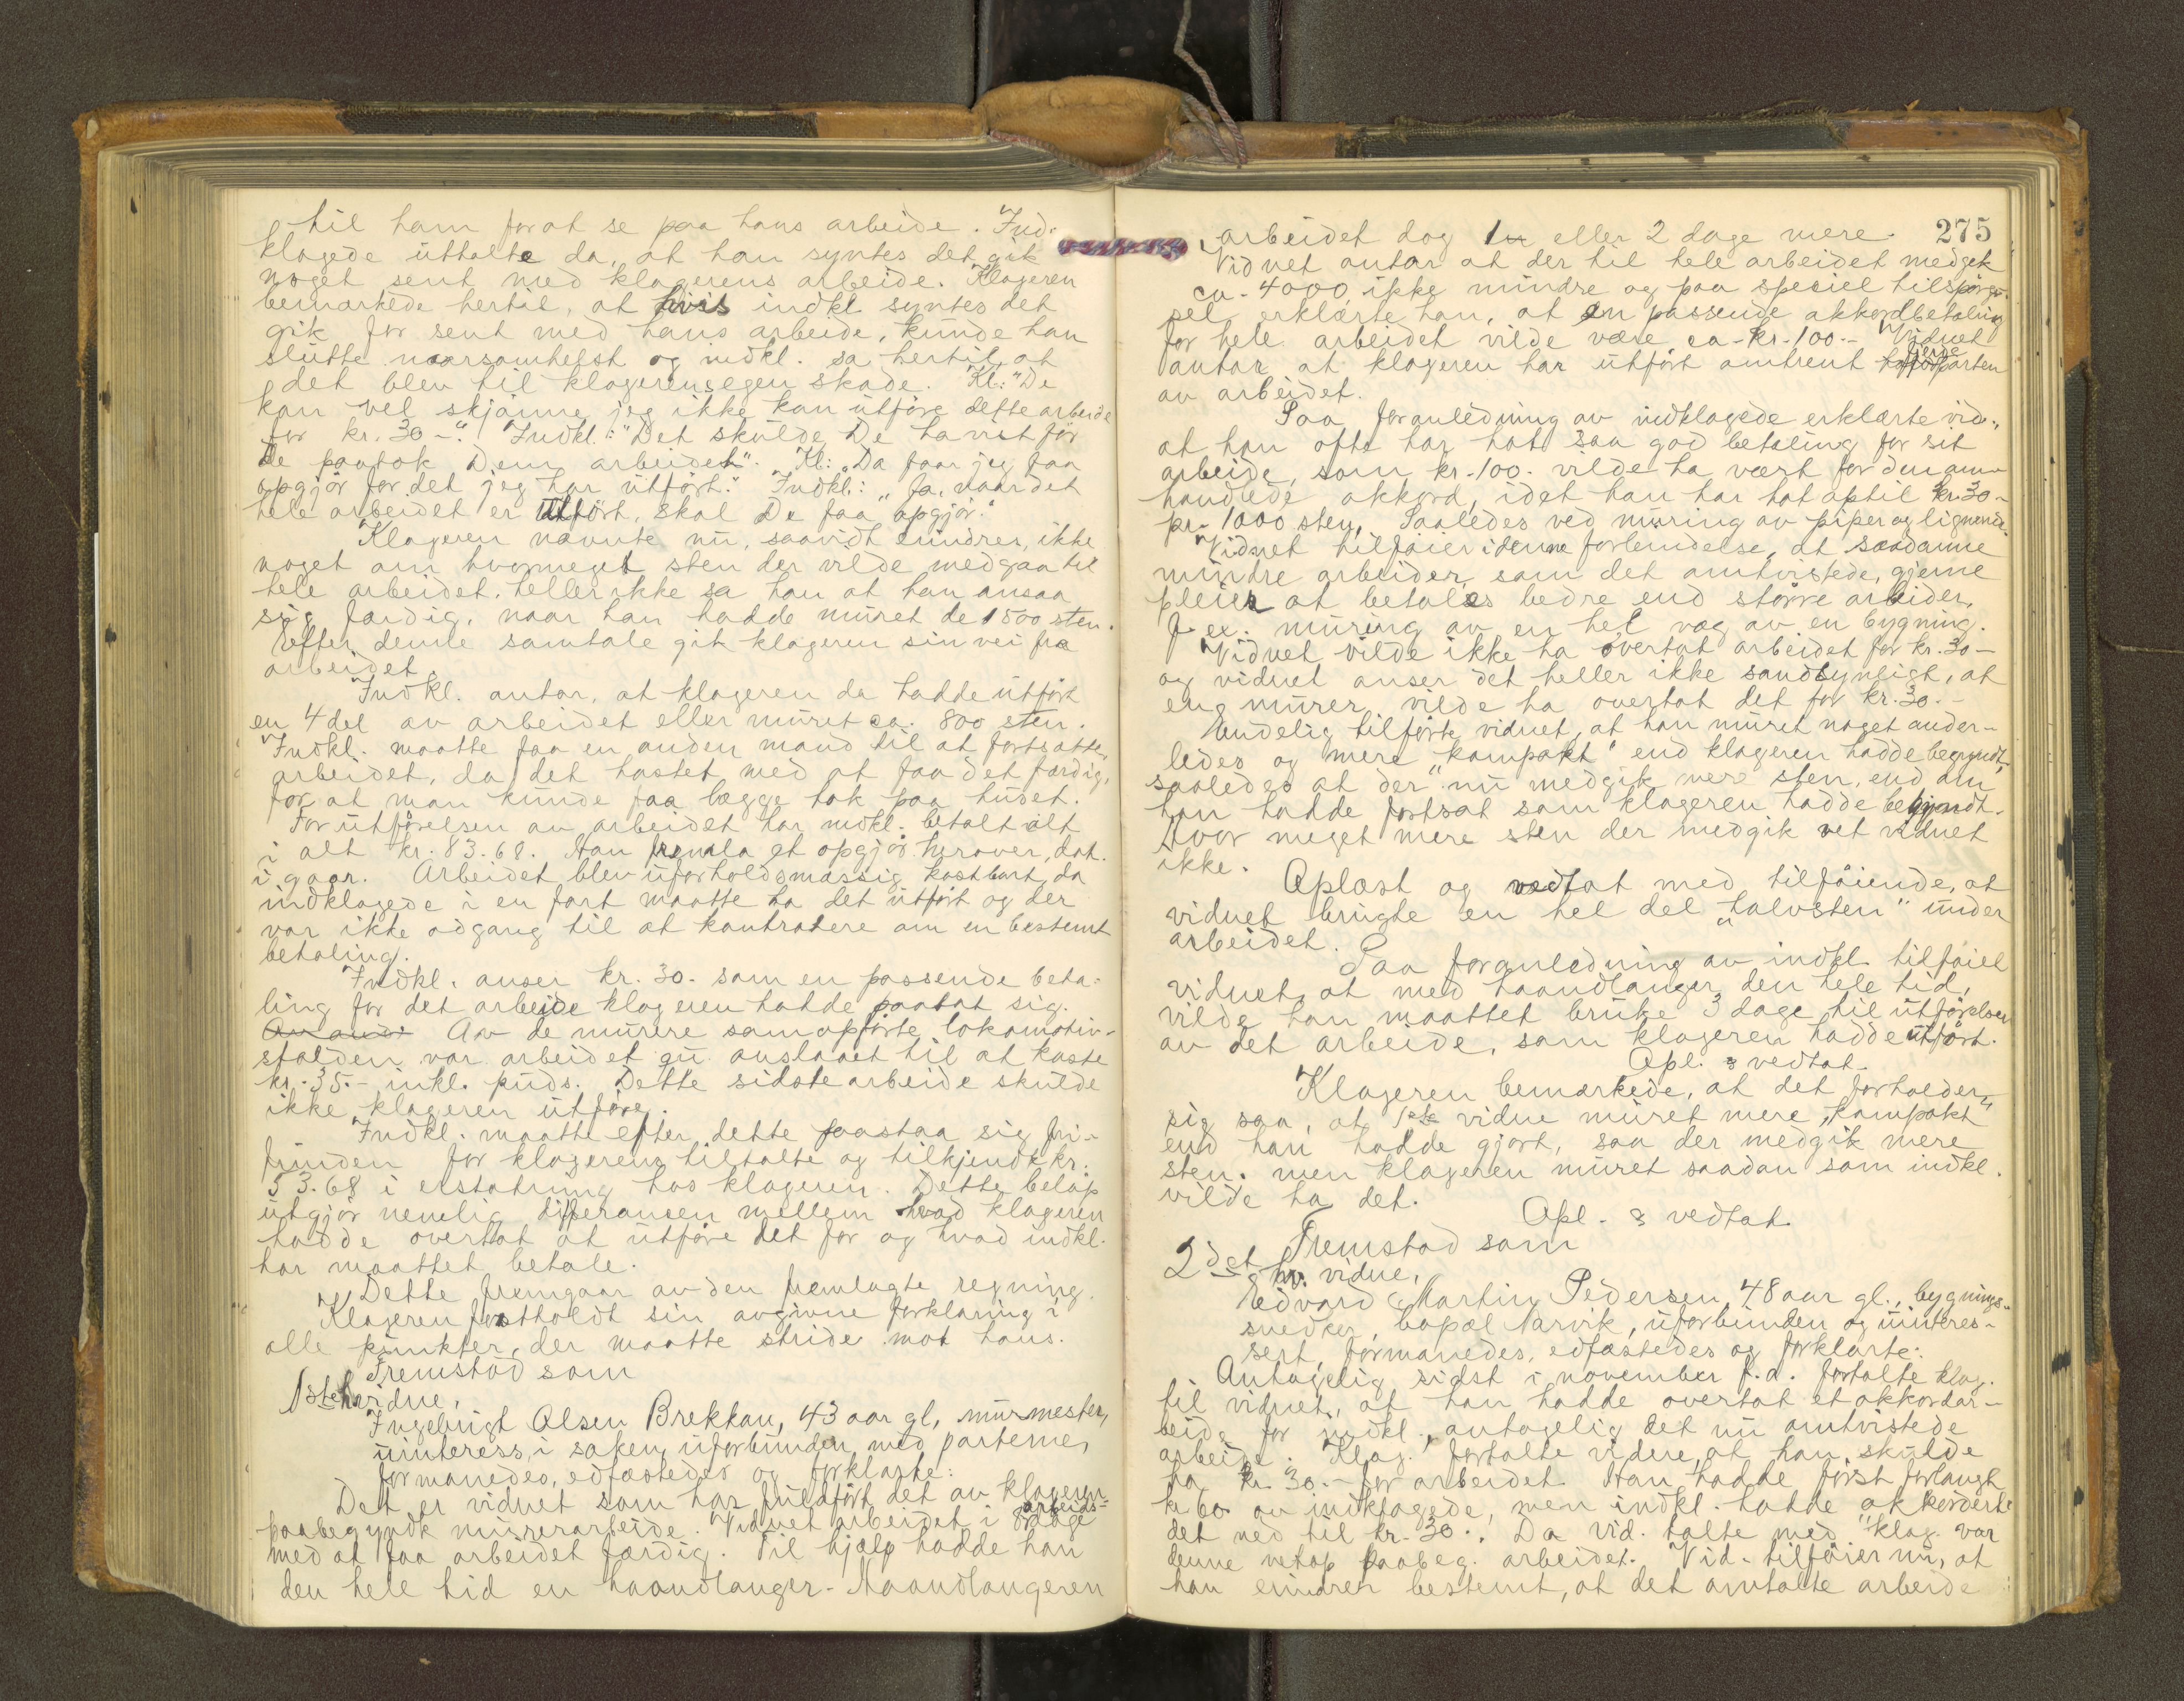 til ham for at se paa hans arbeide. Ind-
klagede uttalte da, at han syntes det gik
noget sent med klagerens arbeide. Klageren
bemærkede hertil, at hvis indkl syntes det
gik for sent med hans arbeide, kunde han
slutte naarsomhelst og indkl. sa hertil at
det blev til klagerens egen skade. Kl: "De
kan vel skjønne jeg ikke kan utføre dette arbeide
for kr. 30-." Indkl.: "Det skulde De ha vist før
De paatok Dem arbeidet". Kl: "Da faar jeg faa
opgjør for det jeg har utført." Indkl.: "Ja, naar det
hele arbeidet er utført, skal De faa opgjør."
Klageren nævnte nu, saavidt erindres, ikke
noget om hvormeget sten der vilde medgaa til
hele arbeidet, heller ikke sa han at han ansaa
sig færdig, naar han hadde muret de 1500 sten.
Efter denne samtale gik klageren sin vei fra
arbeidet.
Indkl. antar, at klageren da hadde utført
en 4 del av arbeidet eller muret ca. 800 sten.
Indkl. maatte faa en anden mand til at fortsætte
arbeidet, da det hastet med at faa det færdig,
for at man kunde faa lægge tak paa huset.
For utførelsen av arbeidet har indkl. betalt alt
i alt kr. 83.68. Han fremla et opgjør herover, dat.
i gaar. Arbeidet blev uforholdsmæssig kostbart, da
indklagede i en fart maatte ha det utført og der
var ikke adgang til at kontrahere om en bestemt
betaling.
Indkl. anser kr. 30.- som en passende beta-
ling for det arbeide klageren hadde paatat sig.
Av de murere som opførte lokomotiv-
stalden var arbeidet gu anslaaet til at koste
kr. 35.- inkl. puds. Dette sidste arbeide skulde
ikke klageren utføre.
Indkl. maatte efter dette paastaa sig fri-
funden for klagerens tiltalte og tilkjendt kr.
53.68 i erstatning hos klageren. Dette beløp
utgjør nemlig differansen mellem hvad klageren
hadde overtat at utføre det for og hvad indkl.
har maattet betale.
Dette fremgaar av den fremlagte regning.
Klageren fastholdt sin avgivne forklaring i
alle punkter, der maatte stride mot hans.
Fremstod som
1ste hv. vidne,
Ingebrigt Olsen Brekkan, 43 aar gl, murmester,
uinteress. i saken, uforbunden med parterne,
formanedes, edfæstedes og forklarte:
Det er vidnet som har fuldført det av klageren
paabegyndte murerarbeide. Vidnet arbeidet i 8 arbeids-
dage
med at faa arbeidet færdig. Til hjælp hadde han
den hele tid en haandlanger. Haandlangeren
275
arbeidet dog 1 eller 2 dage mere.
Vidnet antar at der til hele arbeidet medgik
ca. 4000, ikke mindre og paa speciel tilspørg-
sel erklærte han, at en passende akkordbetaling
for hele arbeidet vilde være ca. kr. 100.- Vidnet
antar at klageren har utført omtrent fjerdeparten
av arbeidet.
Paa foranledning av indklagede erklærte vid.,
at han ofte har hat saa god betaling for sit
arbeide, som kr. 100.- vilde ha vært for den om-
handlede akkord, idet han har hat optil kr. 30-
pr. 1000 sten, saaledes ved muring av piper og lignende.
Vidnet tilføier i denne forbindelse, at saadanne
mindre arbeider, som det omtvistede, gjerne
pleier at betales bedre end større arbeider,
f. ex. muring av en hel væg av en bygning.
Vidnet vilde ikke ha overtat arbeidet for kr. 30-
og vidnet anser det heller ikke sandsynligt, at
en murer vilde ha overtat det for kr. 30.-
Endelig tilførte vidnet, at han muret noget ander-
ledes og mere "kompakt" end klageren hadde begyndt
saaledes at der nu medgik mere sten, end om
han hadde fortsat som klageren hadde begyndt.
Hvor meget mere sten der medgik vet vidnet
ikke.
Oplæst og vedtat med tilføiende, at
vidnet brugte en hel del "halvsten" under
arbeidet.
Paa foranledning av indkl. tilføiet
vidnet, at med haandlanger den hele tid,
vilde han maattet bruke 3 dage til utførelsen
av det arbeide, som klageren hadde utført.
Opl. & vedtat.
Klageren bemærkede, at det forholder
sig saa, at 1ste vidne muret mere "kompakt"
end han hadde gjort, saa der medgik mere
sten, men klageren muret saadan som indkl.
vilde ha det.
Opl. & vedtat.
Fremstod som
2det hv. vidne,
Edvard Martin Pedersen, 48 aar gl., bygnings-
snedker, bopæl Narvik, uforbunden og uinteres-
sert, formanedes, edfæstedes og forklarte:
Antagelig sidst i november f. a. fortalte klag.
til vidnet, at han hadde overtat et akkordar-
beide for indkl., antagelig det nu omtvistede
arbeide. Klag. fortalte videre, at han skulde
ha kr. 30.- for arbeidet. Han hadde først forlangt
kr 60 av indklagede, men indkl. hadde akkorderte
det ned til kr. 30.-. Da vid. talte med klag. var
denne netop paabeg. arbeidet. Vid. tilføier nu, at
han erindrer bestemt, at det omtalte arbeide